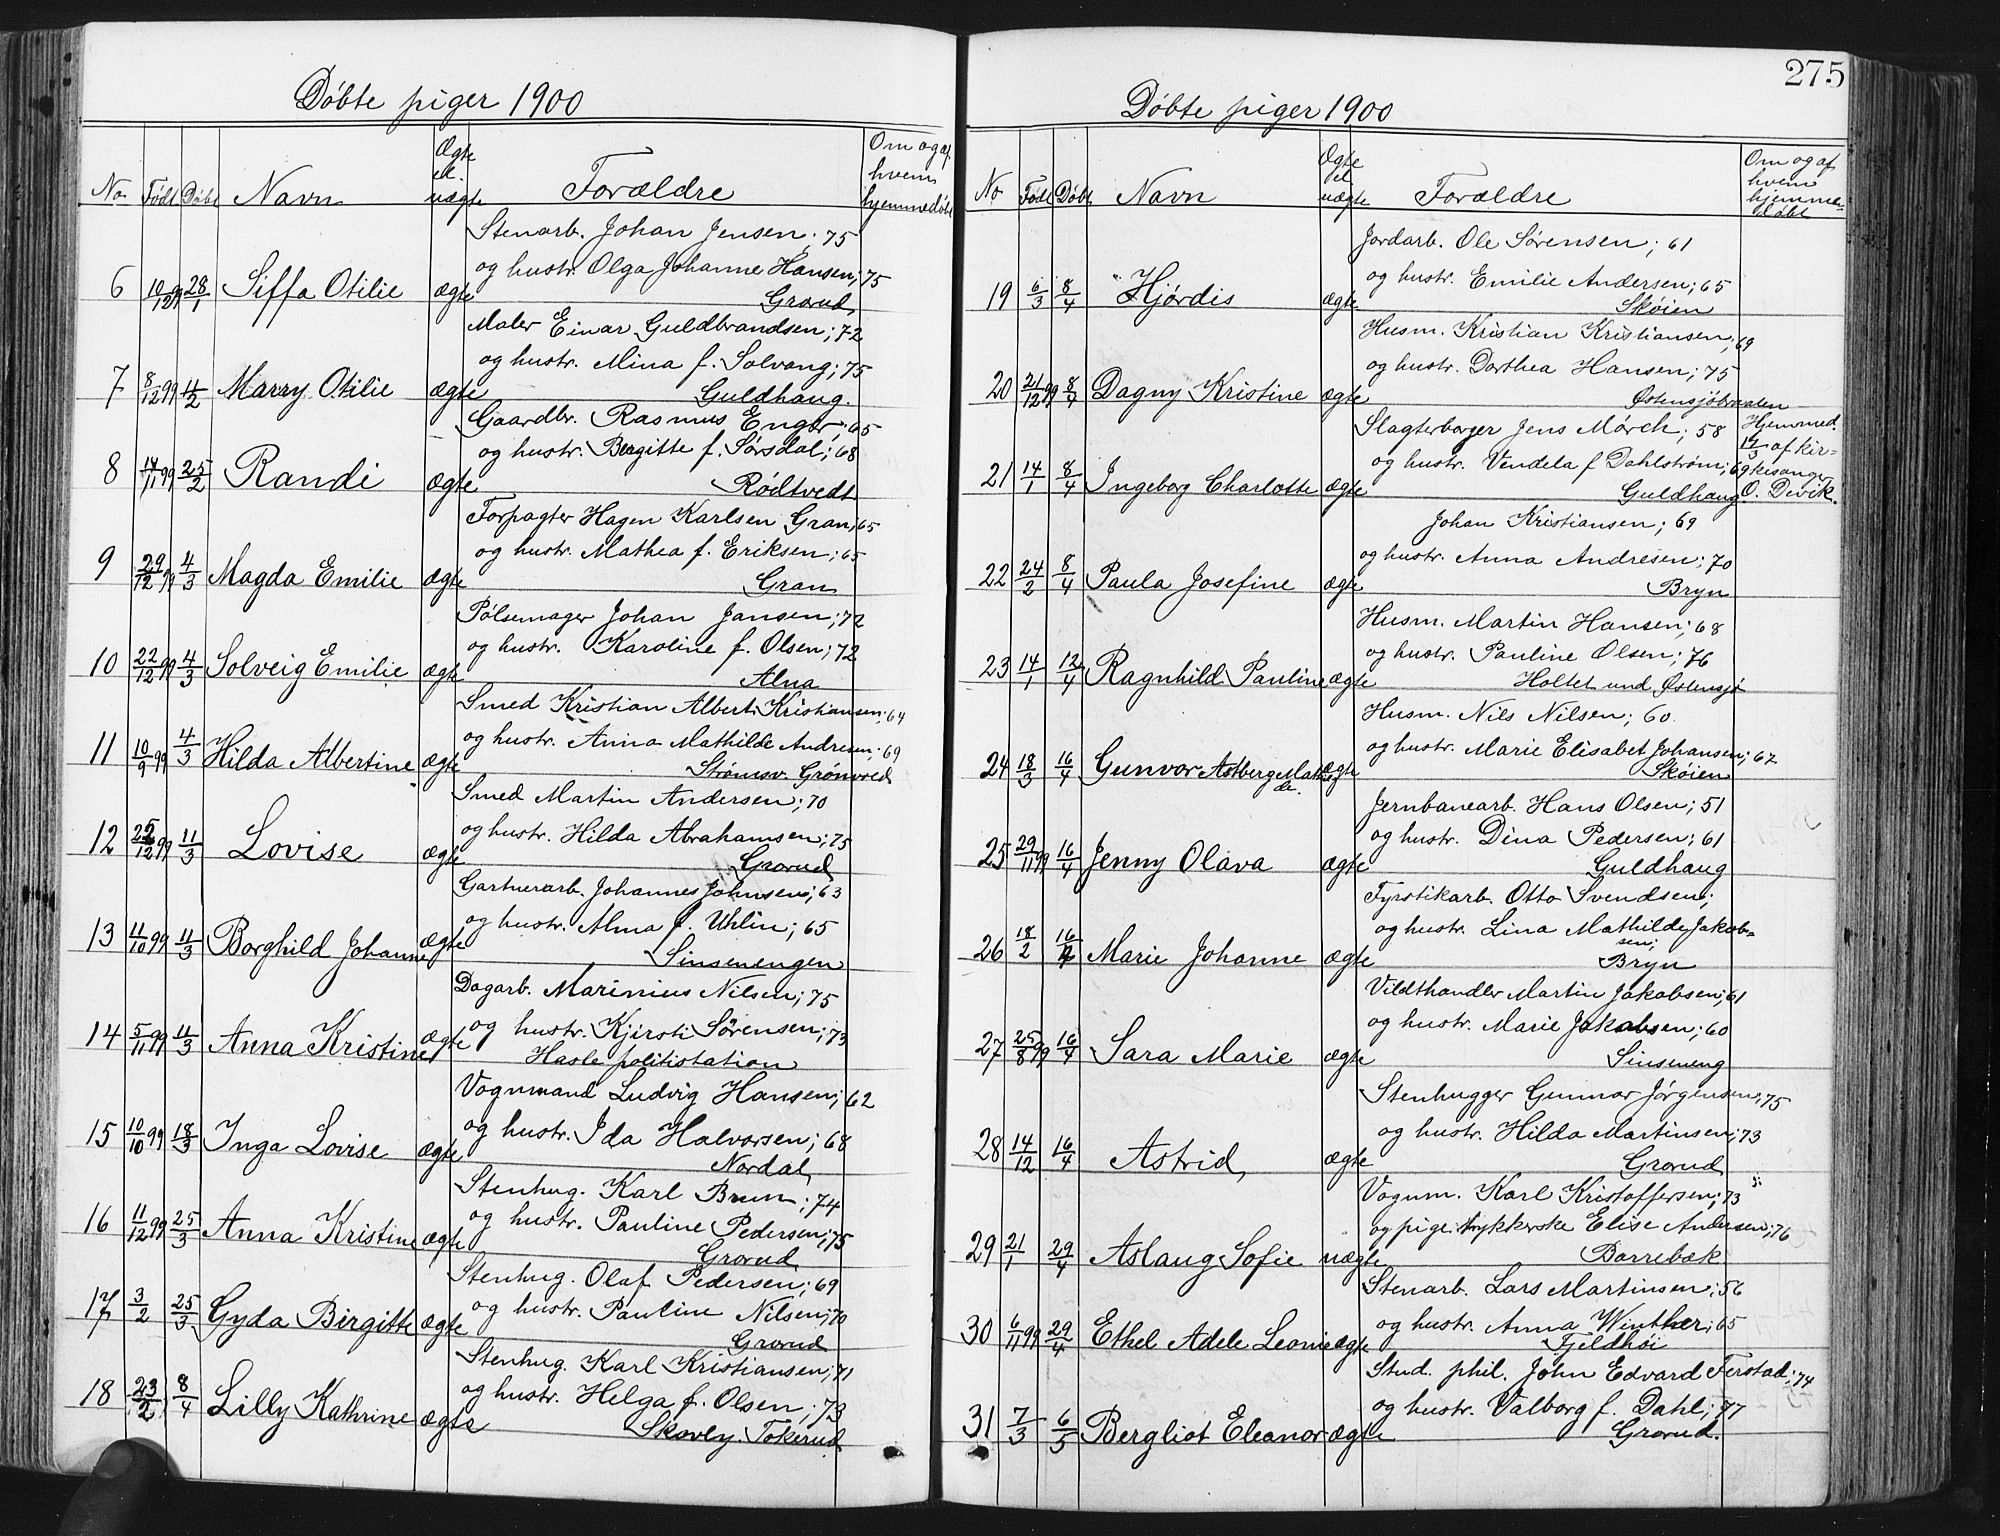 Døbte piger 1900
No Født Døbt Navn Ægte el. uægte Forældre Om og af hvem hjemmedøbt
Stenarb. Johan Jensen; 75
og hustr. Olga Johanne Hansen; 75
6 10/12 99 28/1 Siffa Otilie ægte Grorud
Maler Einar Guldbrandsen; 72
og hustr. Mina f. Solvang; 75
7 8/12 99 4/2 Marry Otilie ægte Guldhaug.
Gaardbr. Rasmus Enger; 65
og hustr. Bergitte f. Sørsdal; 68
8 14/11 99 25/2 Randi ægte Rødtvedt
Forpagter Hagen Karlsen Gran; 65
og hustr. Mathea f. Eriksen; 65
9 29/12 99 4/3 Magda Emilie ægte Gran
Pølsemager Johan Jansen; 72
og hustr. Karoline f. Olsen; 72
10 22/12 99 4/3 Solveig Emilie ægte Alna
Smed Kristian Albert Kristiansen; 64
og hustr. Anna Mathilde Andresen; 69
11 10/9 99 4/3 Hilda Albertine ægte Strømsv. Grønvold
Smed Martin Andersen; 70
og hustr. Hilda Abrahamsen; 75
12 /12 99 11/3 Lovise ægte Grorud
Gartnerarb. Johannes Johnsen; 63
og hustr. Alma f. Uhlin; 65
13 11/10 99 11/3 Borghild Johanne ægte Sinsenengen
Dagarb. Marinius Nilsen; 75
og hustr. Kjirsti Sørensen; 73
14 5/11 99 11/3 Anna Kristine ægte Hasle politistation
Vognmand Ludvig Hansen; 62
og hustr. Ida Halvorsen; 68
15 10/10 99 18/3 Inga Lovise ægte Nordal
Stenhug. Karl Brun; 74
og hustr. Pauline Pedersen; 75
16 11/12 99 25/3 Anna Kristine ægte Grorud
Stenhug. Olaf Pedersen; 69
og hustr. Pauline Nilsen; 70
17 3/2 25/3 Gyda Birgitte ægte Grorud
Stenhug. Karl Kristiansen; 71
og hustr. Helga f. Olsen; 73
18 23/2 8/4 Lilly Kathrine ægte Skovly. Tokerud
275
Døbte piger 1900
No Født Døbt Navn Ægte el uægte Forældre Om og af hvem hjemmedøbt
Jordarb. Ole Sørensen; 61
og hustr. Emilie Andersen; 65
19 6/3 8/4 Hjørdis ægte Skøien
Husm. Kristian Kristiansen; 69
og hustr. Dorthea Hansen; 75
20 21/12 99 8/4 Dagny Kristine ægte Østensjøbraaten
Slagterborger Jens Mørch; 58 Hjemmed.
og hustr. Vendela f Dahlstrøm; 69 14/3 af kirkesanger
21 14/1 8/4 Ingeborg Charlotte ægte Guldhaug O. Devik.
Johan Kristiansen; 69
og hustr. Anna Andresen; 70
22 24/2 8/4 Paula Josefine ægte Bryn
Husm. Martin Hansen; 68
og hustr. Pauline Olsen; 76
23 14/1 12/4 Ragnhild Pauline ægte Holtet und Østensjø
Husm. Nils Nilsen; 60
og hustr. Marie Elisabet Johansen; 67
24 18/3 16/4 Gunvor Astberg Mathilde ægte Skøien
Jernbanearb. Hans Olsen; 51
og hustr. Dina Pedersen; 61
25 29/11 99 16/4 Jenny Olava ægte Guldhaug
Fyrstikarb. Otto Svendsen;
og hustr. Lina Mathilde Jakobsen;
26 18/2 16/4 Marie Johanne ægte Bryn
Vildthandler Martin Jakobsen; 61
og hustr. Marie Jakobsen; 60
27 25/8 99 16/4 Sara Marie ægte Sinseneng
Stenhugger Gunnar Jørgensen; 75
og hustr. Hilda Martinsen; 73
28 14/12 16/4 Astrid ægte Grorud
Vognm. Karl Kristoffersen; 73
og pige trykkerske Elise Andersen; 76
29 21/1 29/4 Aslaug Sofie uægte Borrebæk
Stenarb. Lars Martinsen; 56
og hustr. Anna Winther; 65
30 6/11 99 29/4 Ethel Adele Leonie ægte Fjeldhøi
Stud. phil. John Edvard Ferstad; 74
og hustr. Valborg f. Dahl; 77
31 7/3 6/5 Bergliot Eleanor ægte Grorud.